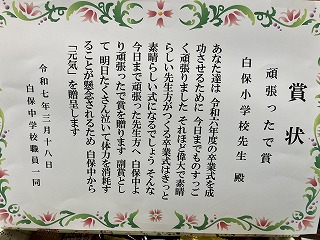 賞状
「頑張ったで賞」
白保小学校先生 殿
あなた達は 令和六年度の卒業式を成
功させるために 今日までものすっご
く頑張りました それほど偉大で素晴
らしい先生方がつくる卒業式はきっと
素晴らしい式になるでしょう そんな
今日まで頑張った先生方へ 白保中よ
り頑張ったで賞を贈ります 副賞とし
て 明日たくさん泣いて体力を消耗す
ることが懸念されるため 白保中から
「元気」を贈呈します
令和七年三月十八日
白保中学校職員一同